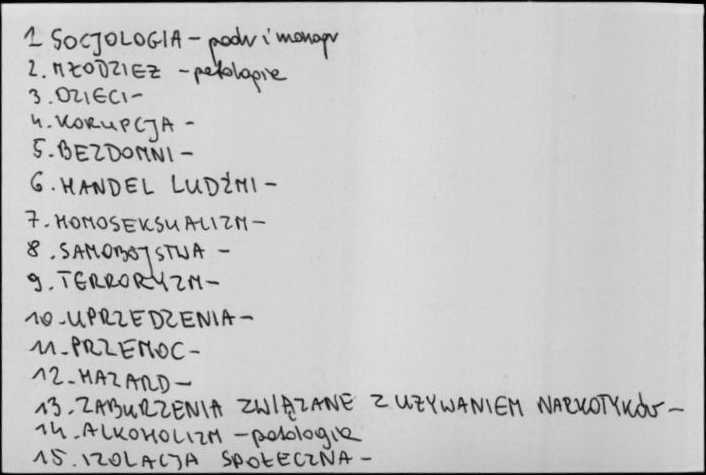 1 SOCJOLOGIA - podr i monogr
2. MŁODZIEŻ - patologie
3. DZIECI -
4. KORUPCJA -
5. BEZDOMNI -
6. HANDEL LUDŹMI -
7. HOMOSEKSUALIZM -
8. SAMOBÓJSTWA -
9. TERRORYZM -
10. UPRZEDZENIA -
11. PRZEMOC -
12. HAZARD -
13. ZABURZENIA ZWIĄZANE Z UŻYWANIEM NARKOTYKÓW -
14. ALKOHOLIZM - patologie
15. IZOLACJA SPOŁECZNA -